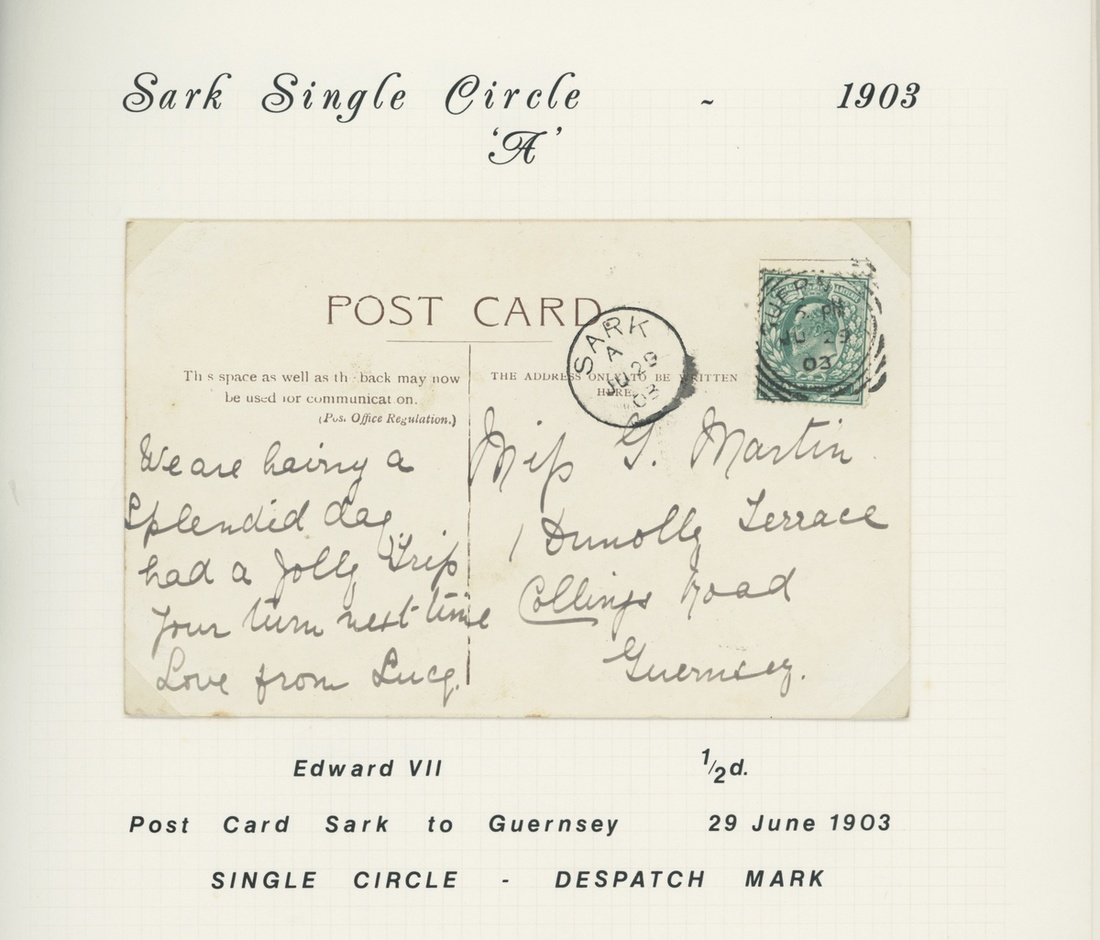 Sark Single Circle ~ 1903
'A'
POST CARD
SARK
A
JU 29
03
GUERN
PM
JU 29
03
This space as well as the back may now
be used for communication.
(Pos. Office Regulation.)
THE ADDRESS ONLY TO BE WRITTEN
HERE
We are having a
Splendid day
had a Jolly Trip
Your turn next time
Love from Lucy.
Miss G. Martin
1 Dunolly Terrace
Collings Road
Guernsey.
Edward VII ½d.
Post Card Sark to Guernsey 29 June 1903
SINGLE CIRCLE - DESPATCH MARK